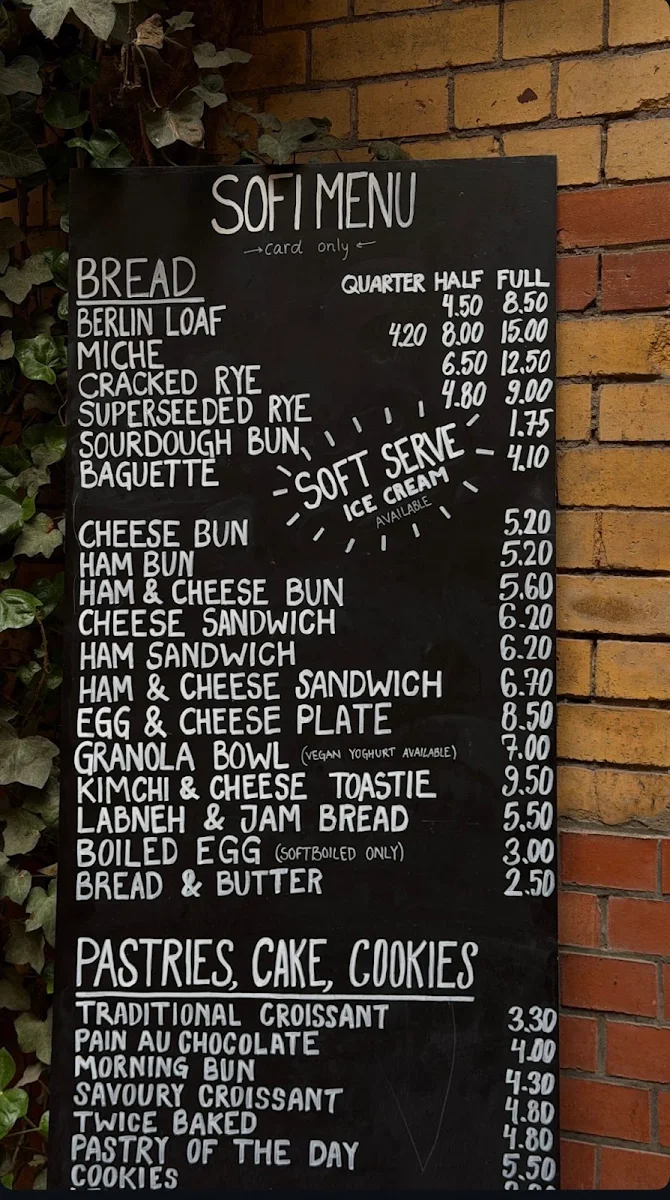 SOFI MENU
→card only←
BREAD QUARTER HALF FULL
BERLIN LOAF 4.50 8.50
MICHE 4.20 8.00 15.00
CRACKED RYE 6.50 12.50
SUPERSEEDED RYE 4.80 9.00
SOURDOUGH BUN 1.75
BAGUETTE 4.10
SOFT SERVE
ICE CREAM
AVAILABLE
CHEESE BUN 5.20
HAM BUN 5.20
HAM & CHEESE BUN 5.60
CHEESE SANDWICH 6.20
HAM SANDWICH 6.20
HAM & CHEESE SANDWICH 6.70
EGG & CHEESE PLATE 8.50
GRANOLA BOWL (VEGAN YOGHURT AVAILABLE) 7.00
KIMCHI & CHEESE TOASTIE 9.50
LABNEH & JAM BREAD 5.50
BOILED EGG (SOFTBOILED ONLY) 3.00
BREAD & BUTTER 2.50
PASTRIES, CAKE, COOKIES
TRADITIONAL CROISSANT 3.30
PAIN AU CHOCOLATE 4.00
MORNING BUN 4.30
SAVOURY CROISSANT 4.80
TWICE BAKED 4.80
PASTRY OF THE DAY 5.50
COOKIES